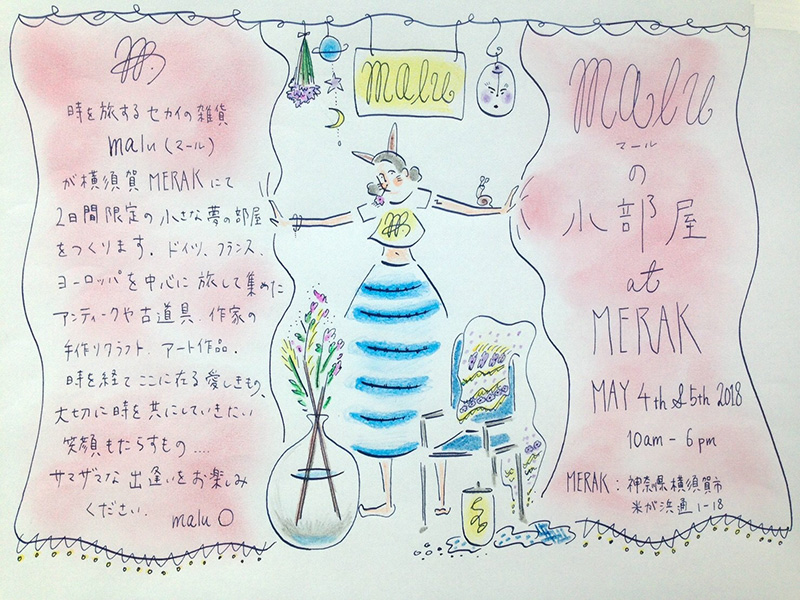 時を旅するセカイの雑貨
malu (マール)
が横須賀 MERAK にて
2日間限定の小さな夢の部屋
をつくります。ドイツ、フランス、
ヨーロッパを中心に旅して集めた
アンティークや古道具、作家の
手作りクラフト、アート作品。
時を経てここに在る愛しきもの、
大切に時を共にしていきたい
笑顔もたらすもの....
サマザマな出逢いをお楽しみ
ください. malu O
malu
malu
マール
の
小部屋
at
MERAK
MAY 4th & 5th 2018
10am - 6pm
MERAK : 神奈県横須賀市
米が浜通 1-18